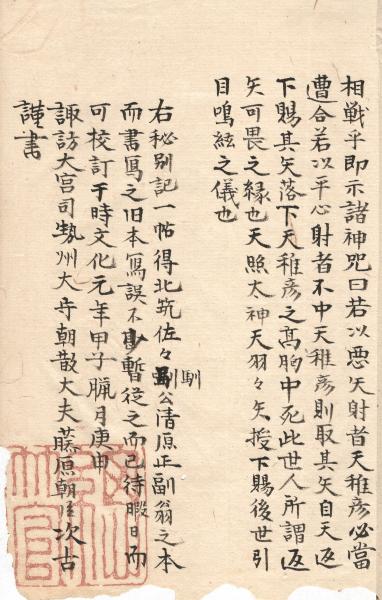 相戦乎即示諸神咒曰若以悪矢射者天稚彦必當
遭合若以平心射者不中天稚彦則取其矢自天返
下賜其矢落下天稚彦之高胸中死此世人所謂返
矢可畏之縁也天照太神天羽々矢授下賜後世引
目鳴絃之儀也
右秘別記一帖得北筑佐々馴公清原正副翁之本
而書寫之旧本寫誤不尠暫從之而已待暇日而
可校訂于時文化元年甲子臘月庚申
諏訪大宮司勢州大守朝散大夫藤原朝臣次古
謹書